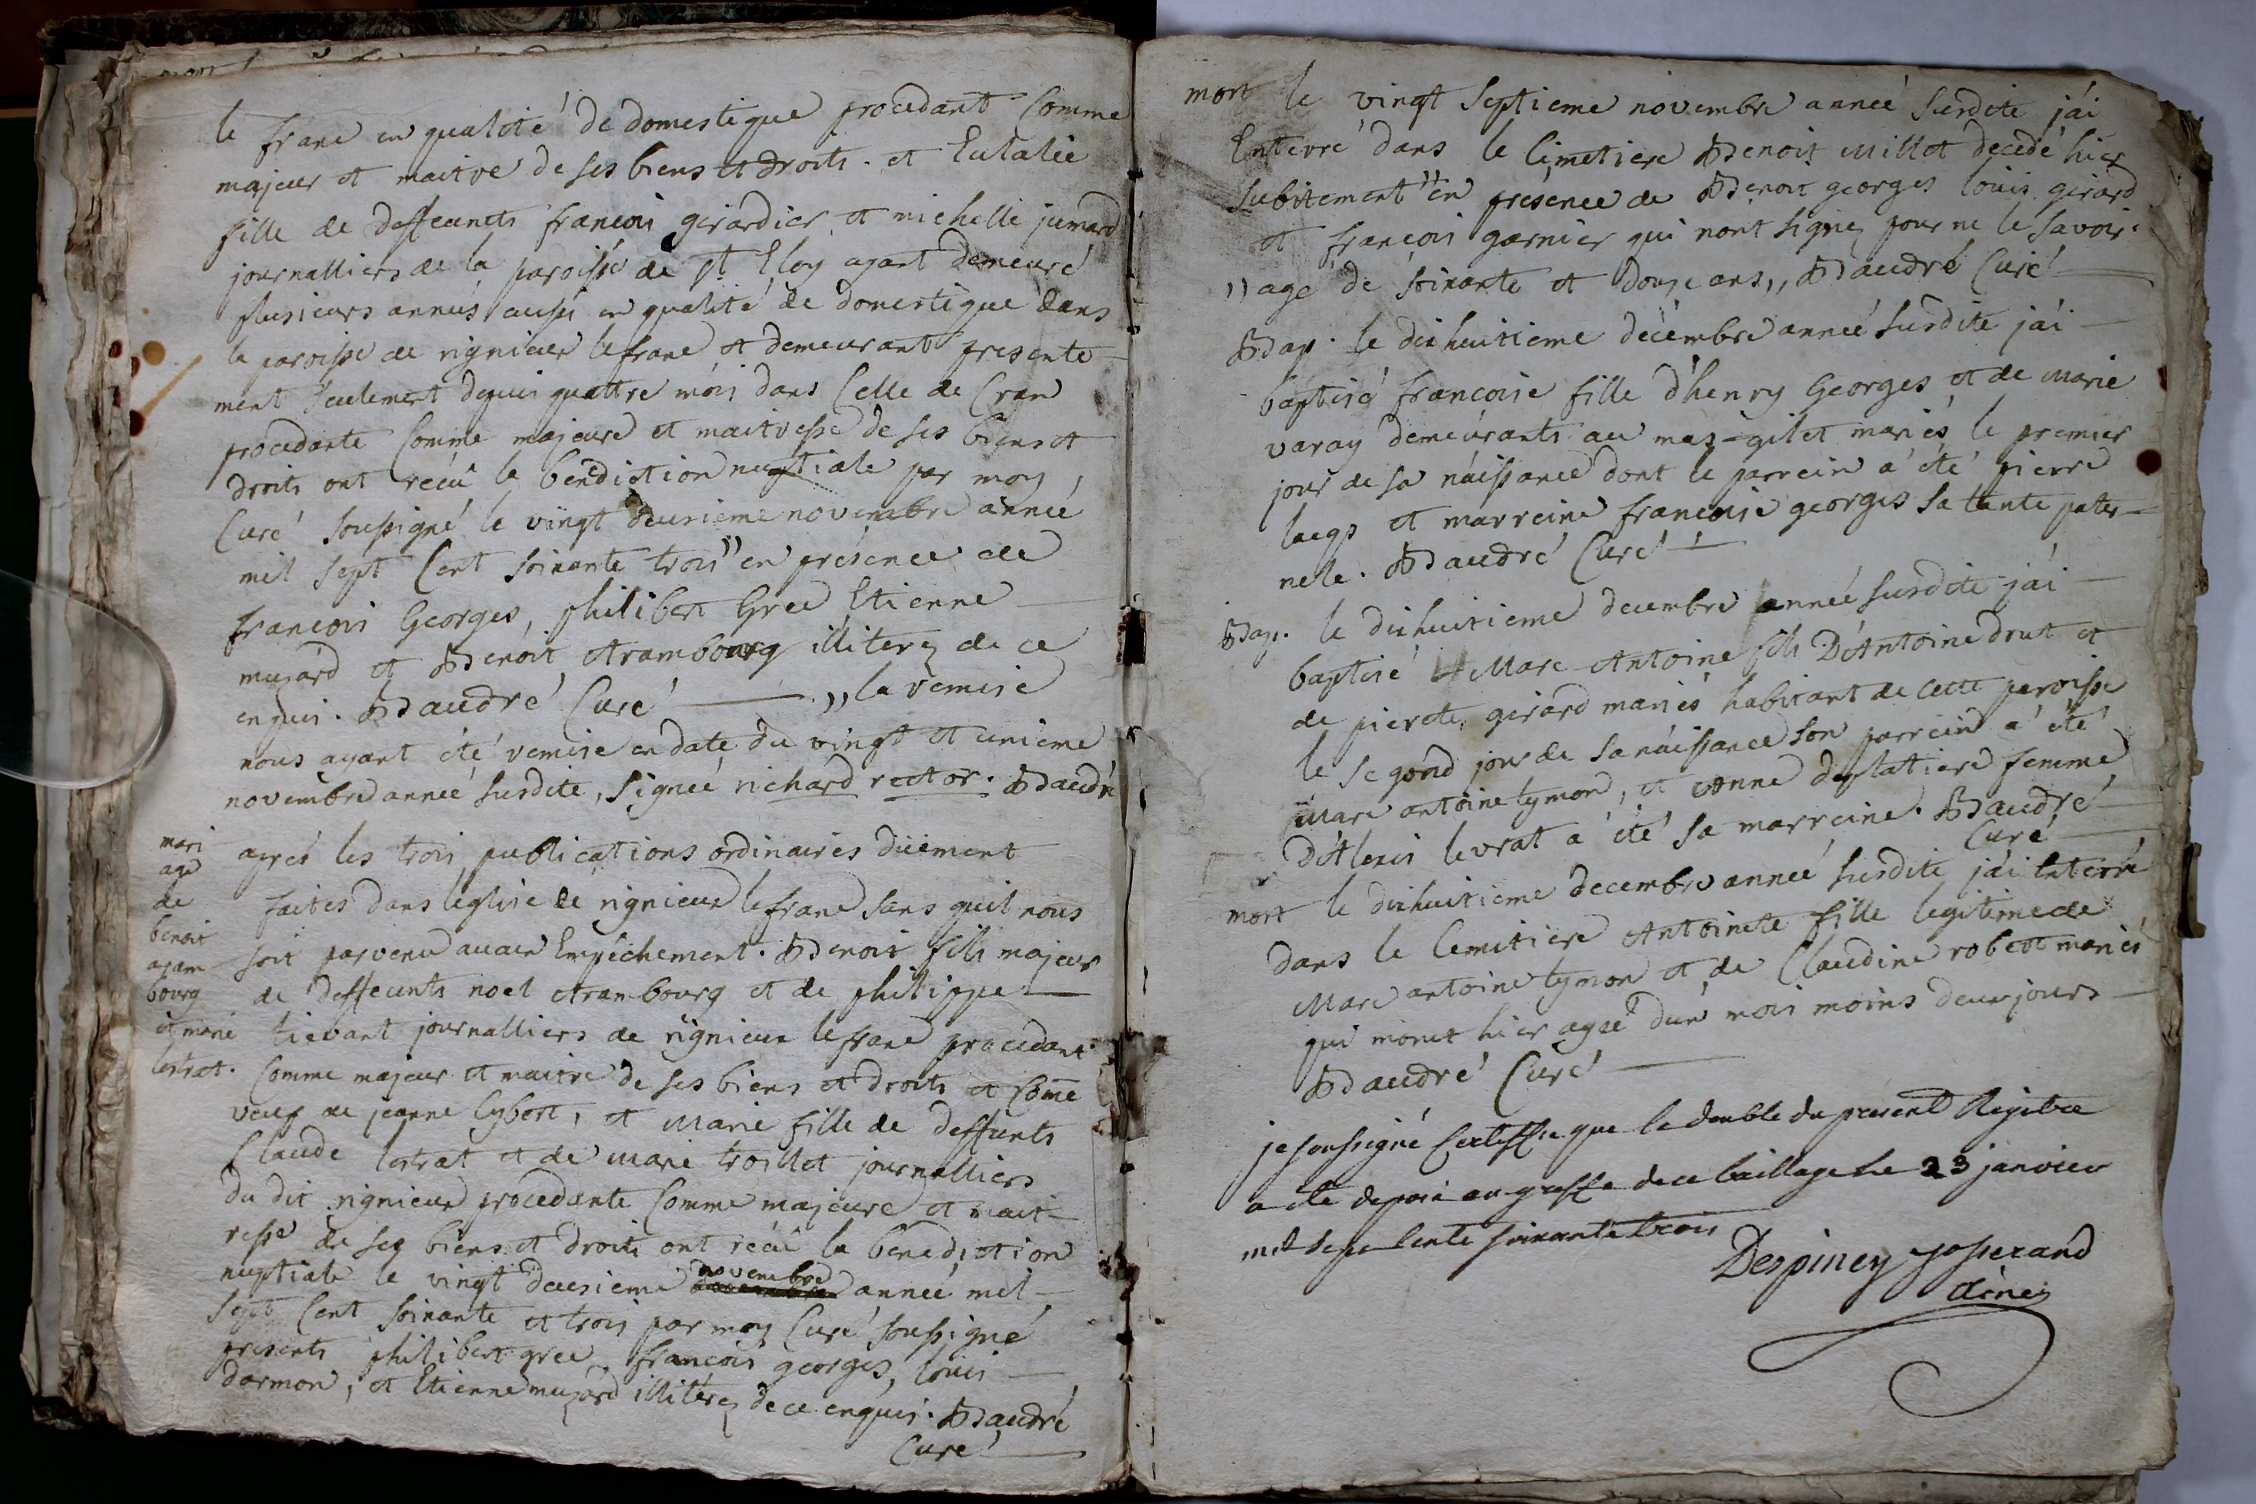 le franc en qualité de domestique procedant Comme
majeur et maitre de ses biens et droits. et Eulalie
fille de deffeunts francois girardier et michelle jumard
journalliers de la paroisse de st Eloy ayant demeuré
plusieurs annués aussi en qualité de domestique dans
la paroisse de rignieux lefranc et demeurant presente-
ment seulement depuis quattre mois dans Celle de Cran
procedante Comme majeure et maitresse de ses biens et
droits ont recüe la bénédiction nuptiale par moy
Curé soussigné le vingt deuxieme novembre année
mil sept Cent soixante trois " en présence de
francois Georges, philibert Gree Etienne
muzard et Benoit Arambourg illiterez de ce
enquis. Baudré Curé — ,, la remise
nous ayant été remise en date du vingt et unieme
novembre année susdite, signée richard rector. Baudré
mari
age
de
benoit
aram
bourg
et marie
lestrat.
apres les trois publications ordinaires düement
faites dans léglise de rignieux lefranc sans quil nous
soit parvenu aucun Empêchement. Benoit fils majeur
de deffeunts noel Arambourg et de philippe
tievant journalliers de rignieux lefranc procedant
Comme majeur et maitre de ses biens et droits et Come
veuf de jeanne Cybert, et Marie fille de deffunts
Claude lestrat et de Marie trosllet journalliers
du dit rignieux procedante Comme majeure et mait-
resse de ses biens et droits ont récüe la benediction
nuptiale le vingt deusieme novembre année mil
sept Cent soixante et trois par moy Curé soussigné
presents philibert gree francois georges, louis
darmon, et Etienne muzard illitérez de ce enquis. Baudré
Curé
mort le vingt septieme novembre année susdite j'ai
Enterré dans le Cimetiere Benoit Millet decedé hier
subitement " en présence de Benoit georges louis girard
et francois garnier qui n'ont signez pour ne le savoir.
,, agé de soixante et douze ans ,, Baudré Curé
Bap. le dixhuitieme décembre année susdite j'ai
baptisé francoise fille d'henry Georges et de Marie
varay demeurants au maz-gilet mariés le premier
jour de sa naissance dont le parrein a été pierre
laego et marreine francoise georges sa tante pater-
nele. Baudré Curé
Bap. le dixhuitieme decembre année susdite j'ai
baptisé Marc Antoine fils D'Antoine drut et
de pierete girard mariés habitant de cette paroisse
le segond jour de sa naissance son parrein a été
Marc antoine tymon, et Anne deplatiere femme
D'Alexis levrat a été sa marreine. Baudré
Curé
mort le dixhuitieme decembre année susdite j'ai Enterré
dans le Cemitiere Antoinete fille legitime de
Marc antoine tymon et de Claudine robert mariés
qui morut hier agée d'un mois moins deux jours
Baudré Curé
je soussigné Certiffie que le double du présent Registre
a été deposé au greffe de ce bailliage le 23 janvier
mil sept cents soixante trois
Despiney josserand
ainé